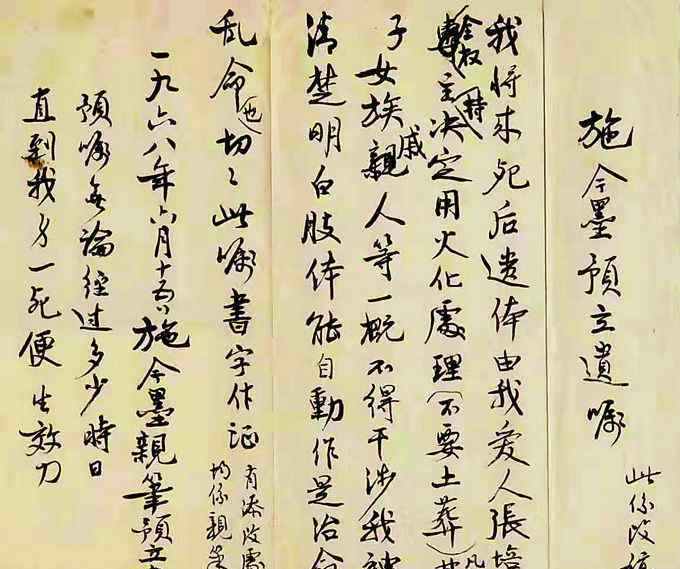 施今墨預立遺嘱
此係改
我将来死后遗体由我爱人張培
全权主持决定用火化處理(不要土葬)凡
子女族親戚人等一概不得干涉我神
清楚明白肢体能自動作是治命
乱命也切々此嘱書字作证
有添改處
均係親筆
一九六八年六月十五日施今墨親筆預立
預嘱無論經过多少時日
直到我身一死便生效力